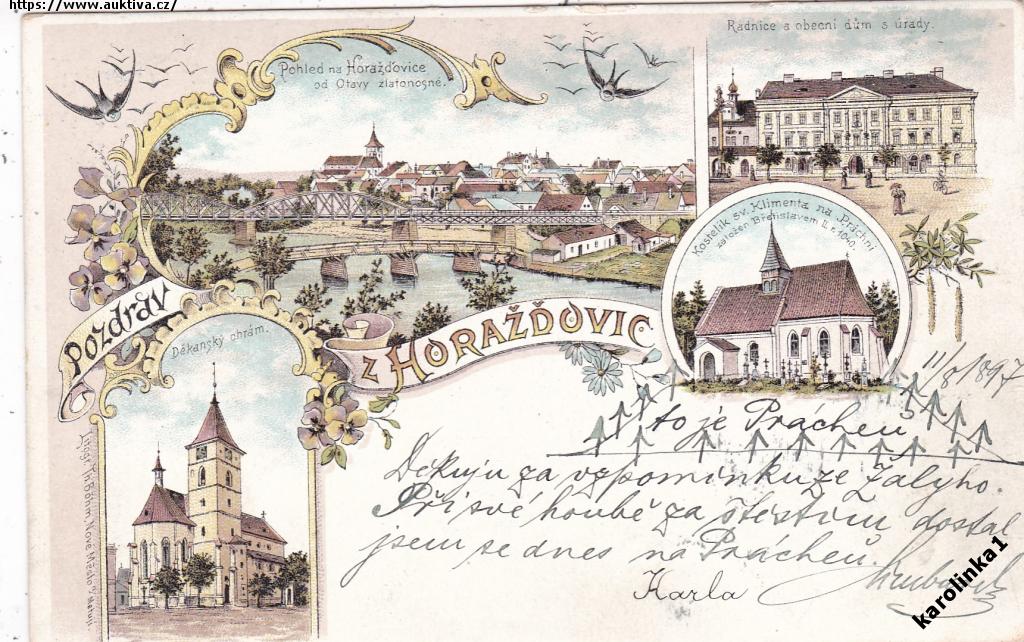 https://www.auktiva.cz/
Pohled na Horažďovice
od Otavy zlatonosné.
Radnice a obecní dům s úřady.
Kostelík sv. Klimenta na Práchni
založen Břetislavem II. r. 1040.
Pozdrav
z HORAŽĎOVIC
Děkanský chrám.
11/8/897
to je Prácheň
Děkuju za vzpomínku ze Žalyho.
Při své houbě za štěstím dostal
jsem se dnes na Prácheň.
Karla
Böhm, Nové Město n/Metují.
karolinka1